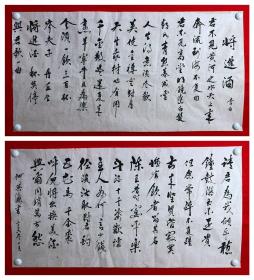 將進酒 李白
君不見黃河之水天上來
奔流到海不復回
君不見高堂明鏡悲白髮
朝如青絲暮成雪
人生得意須盡歡
莫使金樽空對月
天生我材必有用
千金散盡還復來
烹羊宰牛且為樂
會須一飲三百杯
岑夫子丹丘生
將進酒杯莫停
與君歌一曲
請君為我傾耳聽
鐘鼓饌玉不足貴
但願長醉不復醒
古來聖賢皆寂寞
惟有飲者留其名
陳王昔時宴平樂
斗酒十千恣歡謔
主人何為言少錢
徑須沽取對君酌
五花馬千金裘
呼兒將出換美酒
與爾同銷萬古愁